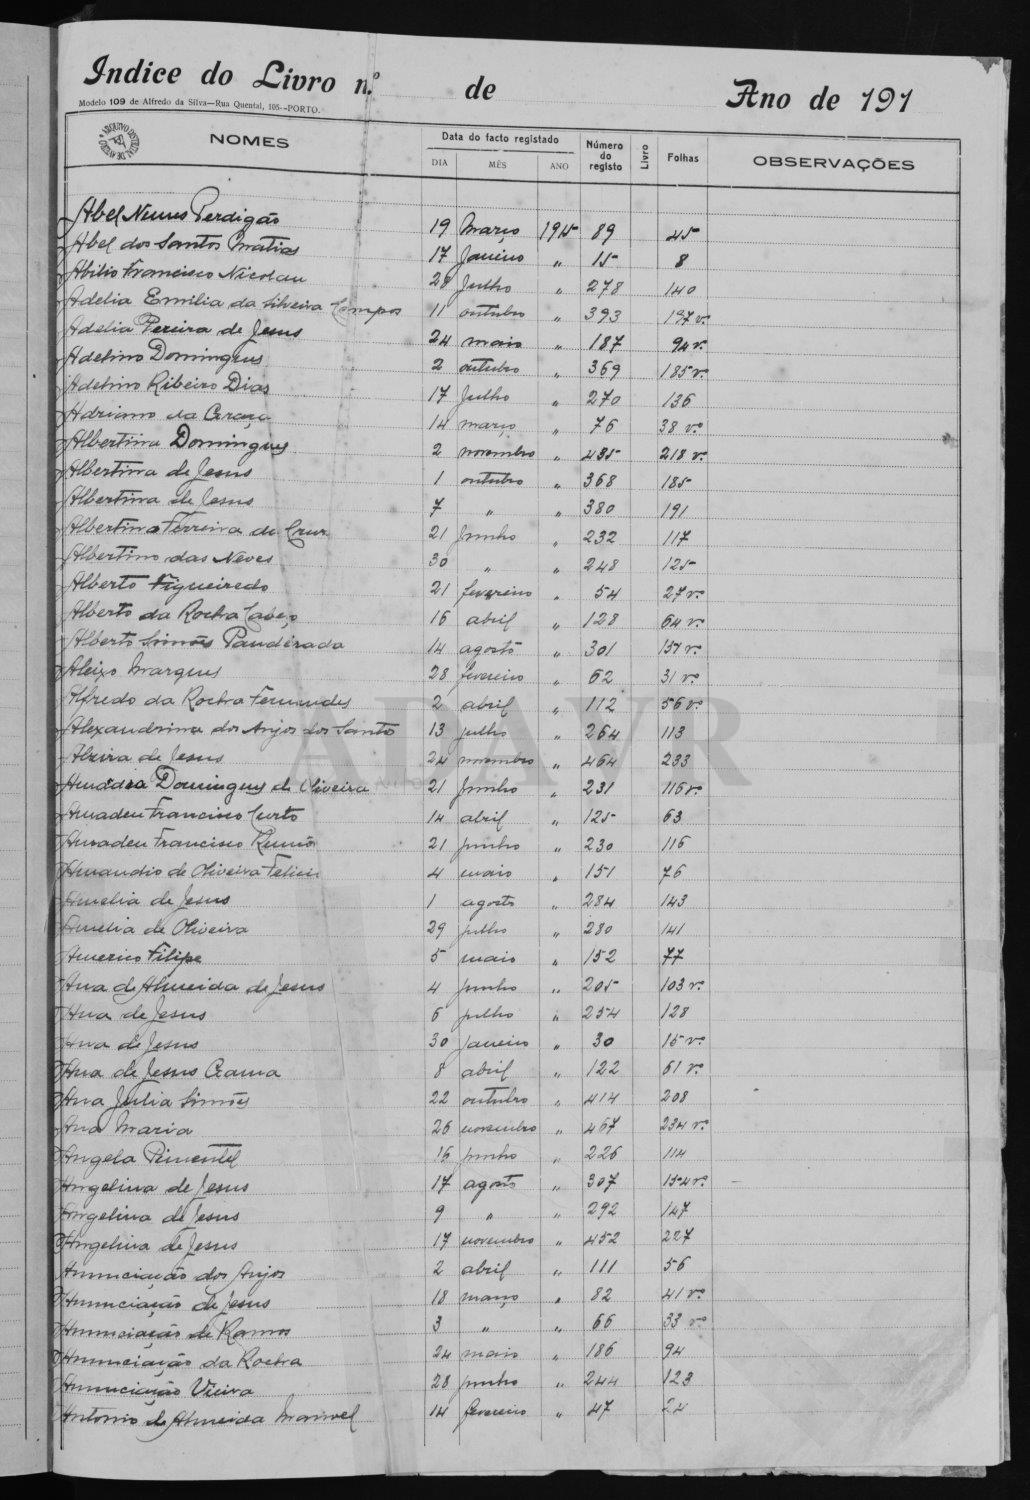 Indice do Livro n.º de Ano de 191
Modelo 109 de Alfredo da Silva—Rua Quental, 105--PORTO.
NOMES Data do facto registado Número do registo Livro Folhas OBSERVAÇÕES
DIA MÊS ANO
Abel Nunes Perdigão 19 Março 1915 89 45
Abel dos Santos Matias 17 Janeiro " 15 8
Abilio Francisco Nicolau 28 Julho " 278 140
Adelia Emilia da Silveira Campos 11 outubro " 393 197 v.º
Adelia Pereira de Jesus 24 maio " 187 94 v.º
Adelino Domingues 2 outubro " 369 185 v.º
Adelino Ribeiro Dias 17 Julho " 270 136
Adriano da Graça 14 março " 76 38 v.º
Albertina Domingues 2 novembro " 435 218 v.º
Albertina de Jesus 1 outubro " 368 185
Albertina de Jesus 7 " " 380 191
Albertina Ferreira da Cruz 21 Junho " 232 117
Albertino das Neves 30 " " 248 125
Alberto Figueiredo 21 fevereiro " 54 27 v.º
Alberto da Rocha Cabeço 16 abril " 128 64 v.º
Alberto Simões Panderada 14 agosto " 301 151 v.º
Aleixo Marques 28 fevereiro " 62 31 v.º
Alfredo da Rocha Fernandes 2 abril " 112 56 v.º
Alexandrina dos Anjos dos Santos 13 julho " 264 113
Alzira de Jesus 24 novembro " 464 233
Amadea Domingues de Oliveira 21 Junho " 231 116 v.º
Amadeu Francisco Curto 14 abril " 125 63
Amadeu Francisco 21 junho " 230 116
Amandio de Oliveira Felicio 4 maio " 151 76
Amelia de Jesus 1 agosto " 284 143
Amelia de Oliveira 29 julho " 280 141
Americo Filipe 5 maio " 152 77
Ana de Almeida de Jesus 4 junho " 205 103 v.º
Ana de Jesus 6 julho " 254 128
Ana de Jesus 30 janeiro " 30 15 v.º
Ana de Jesus Gama 8 abril " 122 61 v.º
Ana Julia Simões 22 outubro " 414 208
Ana Maria 26 novembro " 467 234 v.º
Angela Pimentel 16 junho " 226 114
Angelina de Jesus 17 agosto " 307 154 v.º
Angelina de Jesus 9 " " 292 147
Angelina de Jesus 17 novembro " 452 227
Anunciação dos Anjos 2 abril " 111 56
Anunciação de Jesus 18 março " 82 41 v.º
Anunciação de Ramos 3 " " 66 33 v.º
Anunciação da Rocha 24 maio " 186 94
Anunciação Vieira 28 junho " 244 123
Antonio de Almeida Manuel 14 fevereiro " 47 24
ADAVR